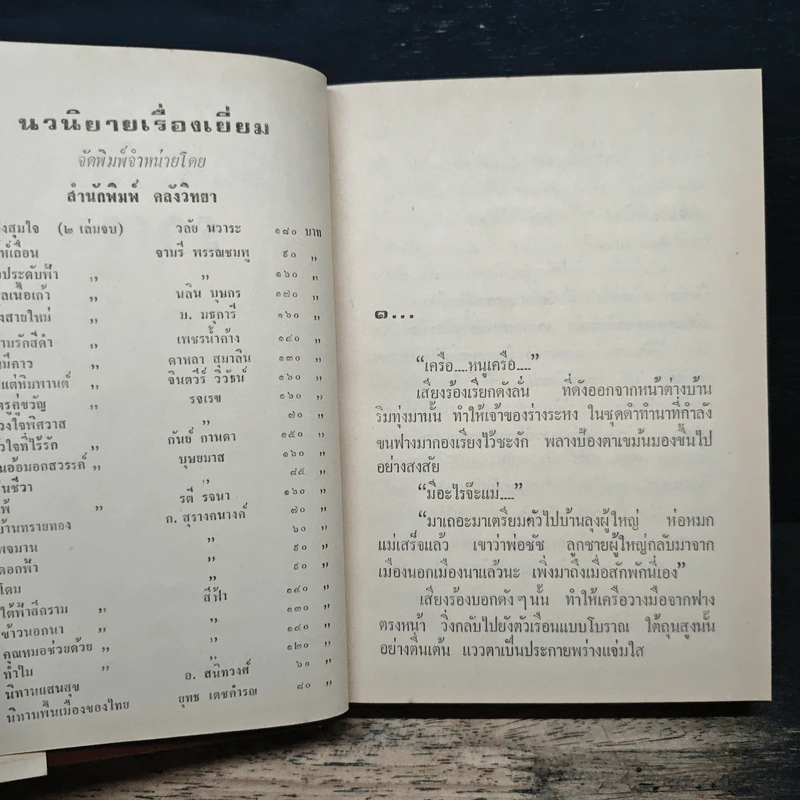 นวนิยายเรื่องเยี่ยม
จัดพิมพ์จำหน่ายโดย
สำนักพิมพ์ คลังวิทยา
งสุมใจ (๒ เล่มจบ) วลัย นวาระ ๑๘๐ บาท
ห์เลื่อน จามรี พรรณชมพู ๙๐ ,,
ประดับฟ้า ,, ,, ๑๖๐ ,,
ลเนื้อเก้า ,, นลิน บุษกร ๑๗๐ ,,
งสายใหม่ ,, ม. มธุการี ๑๖๐ ,,
ามรักสีดำ ,, เพชรน้ำค้าง ๑๔๐ ,,
มีคาว ,, ดาหลา สุมาลิน ๑๓๐ ,,
แต่หิมพานต์ ,, จินตวีร์ วิวัธน์ ๑๖๐ ,,
รูคู่ขวัญ ,, รจเรข ๑๖๐ ,,
วงใจพิศวาส ,, ๗๐ ,,
ัวใจที่ไร้รัก ,, กันย์ กานดา ๑๕๐ ,,
นอ้อมอกสวรรค์ ,, บุษยมาส ๑๖๐ ,,
นชีวา ,, ๘๕ ,,
พ้ ,, รตี รจนา ๑๖๐ ,,
บ้านทรายทอง ก. สุรางคนางค์ ๗๐ ,,
พจมาน ,, ๖๐ ,,
ดอกฟ้า ,, ๙๐ ,,
โดม ,, ๙๐ ,,
ใต้ฟ้าสีคราม ,, สีฟ้า ๑๔๐ ,,
ข้าวนอกนา ,, ,, ๑๓๐ ,,
คุณหมอช่วยด้วย ,, ,, ๑๔๐ ,,
ทำไม ,, ,, ๑๒๐ ,,
นิทานแสนสุข อ. สนิทวงศ์ ๖๐ ,,
นิทานพื้นเมืองของไทย ยุทธ เดชคำรณ ๘๐ ,,
๑...
“เครือ....หนูเครือ....”
เสียงร้องเรียกดังลั่น ที่ดังออกจากหน้าต่างบ้าน
ริมทุ่งมานั้น ทำให้เจ้าของร่างระหง ในชุดดำทำนาที่กำลัง
ขนฟางมากองเรียงไว้ชะงัก พลางป้องตาเขม้นมองขึ้นไป
อย่างสงสัย
“มีอะไรจ๊ะแม่....”
“มาเถอะมาเตรียมตัวไปบ้านลุงผู้ใหญ่ ห่อหมก
แม่เสร็จแล้ว เขาว่าพ่อชัช ลูกชายผู้ใหญ่กลับมาจาก
เมืองนอกเมืองนาแล้วนะ เพิ่งมาถึงเมื่อสักพักนี่เอง”
เสียงร้องบอกดัง ๆ นั้น ทำให้เครือวางมือจากฟาง
ตรงหน้า วิ่งกลับไปยังตัวเรือนแบบโบราณ ใต้ถุนสูงนั้น
อย่างตื่นเต้น แววตาเป็นประกายพร่างแจ่มใส